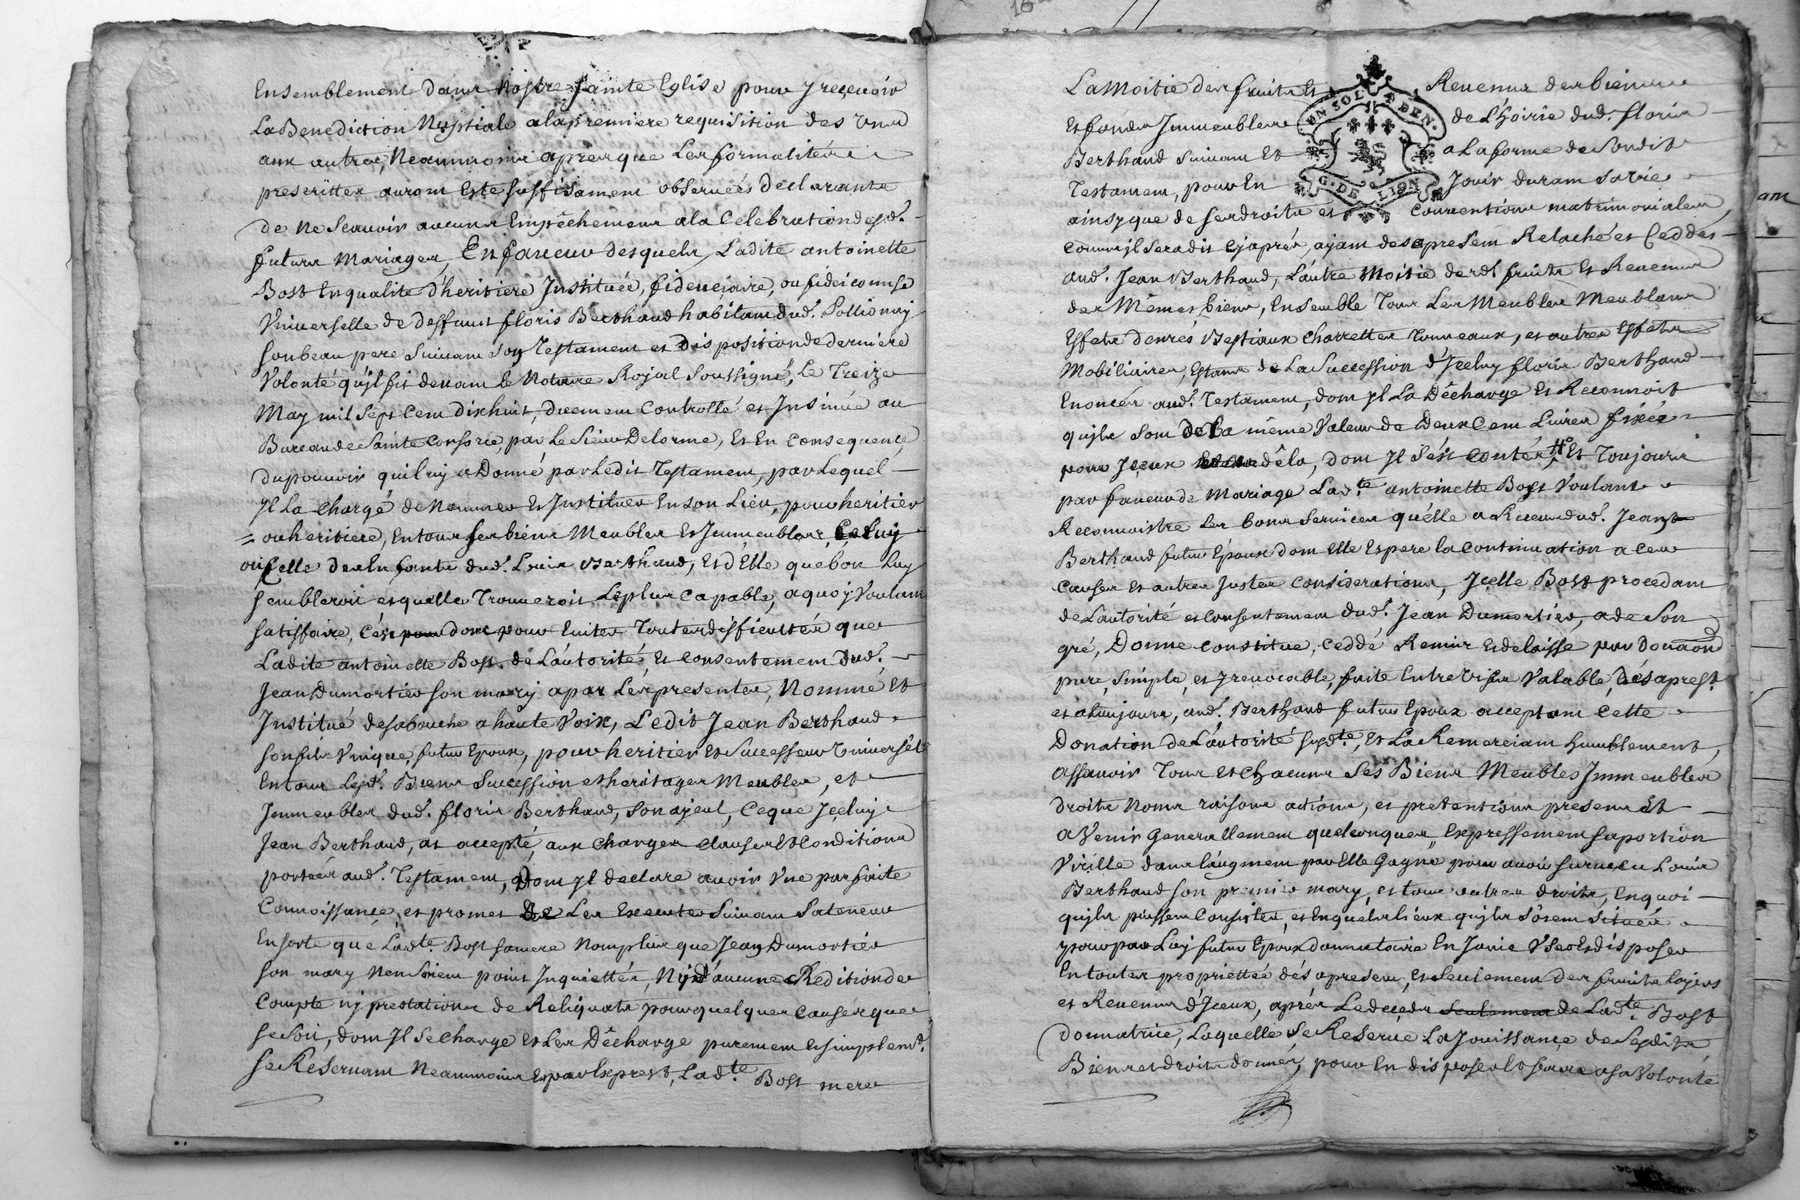 Ensemblement dans Nostre sainte Eglise pour y recevoir
La Benediction Nuptiale a la premiere requisition des uns
aux autres, Neanmoins apres que les formalitées
prescrittes auront Esté suffisament observées declarants
de ne scavoir aucuns Empêchements a la Celebration desd.
futurs Mariages, En faveur desquels, Ladite antoinette
Bost En qualité d'heritiere Instituée, fiduciaire, ou fideicomise
Universelle de deffunt floris Berthaud habitant dud. Pollionay
son beau pere suivant son Testament et disposition de derniere
Volonté qu'il fit devant le Notaire Royal soussigné, le Treize
May mil sept Cent dixhuit, duement Controllé et Insinué au
Bureau de Sainte Consorce, par Le Sieur Delorme, Et En consequence
du pouvoir quil luy a Donné par Ledit Testament, par Lequel
Il La Chargé de Nommer Et Instituer En son Lieu, pour heritier
ou heritiere, En tous ses biens Meubles Et Immeubles, Celuy
ou Celle des Enfants dud. Louis Berthaud, Et d'Elle que bon Luy
sembleroit et quelle Trouveroit Le plus Capable, a quoy Voulant
satisfaire, C'est donc pour Eviter Toutes difficultés que
Ladite antoinette Bost de L'autorité Et Consentement dud.
Jean Dumortier son mary a par Les presentes, Nommé Et
Institué de sa bouche a haute Voix, Ledit Jean Berthaud
son fils Unique, futur Epoux, pour heritier Et Successeur Universel
En tous Lesd. Biens Succession et heritages Meubles, et
Immeubles dud. floris Berthaud, son ajeul, Ce que Jcelluy
Jean Berthaud, at accepté, aux Charges Clauses Et Conditions
portées aud. Testament, Dont Il declare avoir Une parfaite
Connoissance, et promet De Les Executer Suivant Sa teneur
En sorte que Lad.te Bost sa mere Non plus que Jean Dumortier
son mary N'en soient point Inquiettés, Ny d'aucune Reditionde
Compte ny prestations de Reliquats pour quelques Causes que
se soit, dont Il Se Charge Et Les Décharge purement Et simplem.t
se Reservant Neanmoins Et par Expres, Lad.te Bost mere
La Moitié des fruits Et Revenus des biens
Et fonds Immeubles de L'hoirie dud. floris
Berthaud suivant Et a La forme de Sondit
Testament, pour En Jouir durant sa vie
ainsy que de ses droits et Conventions matrimoniales,
comme Il sera dit Cy apres, ajant des a present Relaché et Ceddés
aud. Jean Berthaud, L'autre Moitié desd. fruits Et Revenus
des Mêmes biens, Ensemble Tous Les Meubles Meublants
Effets denrés Bestiaux Charrettes Tonneaux, et autres Effets
Mobiliaires, Estants de La Succession d'Jcelluy floris Berthaud
Enoncés aud. Testament, dont Il La Décharge Et Reconnoit
quils sont de La même Valeur de deux Cent Livres fixée
pour Jceux déla, dont Il s'est Contenté Et Toujours
par faveur de Mariage Lad.te antoinette Bost Voulant
Reconnoistre Les bons Services quélle a Receus dud. Jean
Berthaud futur Epoux dont Elle Espere la Continuation a Ceux
Causes Et autres Justes Considerations, Jcelle Bost procedant
de L'autorité et Consentement dud. Jean Dumortier, a de Son
gré, Donné Constitué, Ceddé Remis Et delaissé par Donaon
pure, simple, et Irrevocable, faite Entre Vifs Valable, dés a prest
et a toujours, aud. Berthaud futur Epoux acceptant Cette
Donation de L'autorité susd.te, Et La Remerciant humblement,
assavoir Tous Et Chacuns Ses Biens Meubles Immeubles
droits Noms raisons actions, et pretentions presens Et
a Venir Generallement quelconques, Expressement sa portion
Virille dans L'augment par Elle Gagné pour avoir survecu Louis
Berthaud son premier mary, et tous autres droits, En quoi
quils puissent Consister, et En quels Lieux quils soient Situés
pour par Luy futur Epoux donnataire En Jouir User Et disposer
En toutes proprietté dés a present, Et seulement des fruits Loyers
et Revenus d'Jceux, aprés Le deceds seulement de Lad.te Bost
donnatrice, Laquelle se Reserve La Jouissance de Sesdits
Biens et droits donnés, pour En disposer a sa Volonté
EN SOL E DEN.
G. DE LION